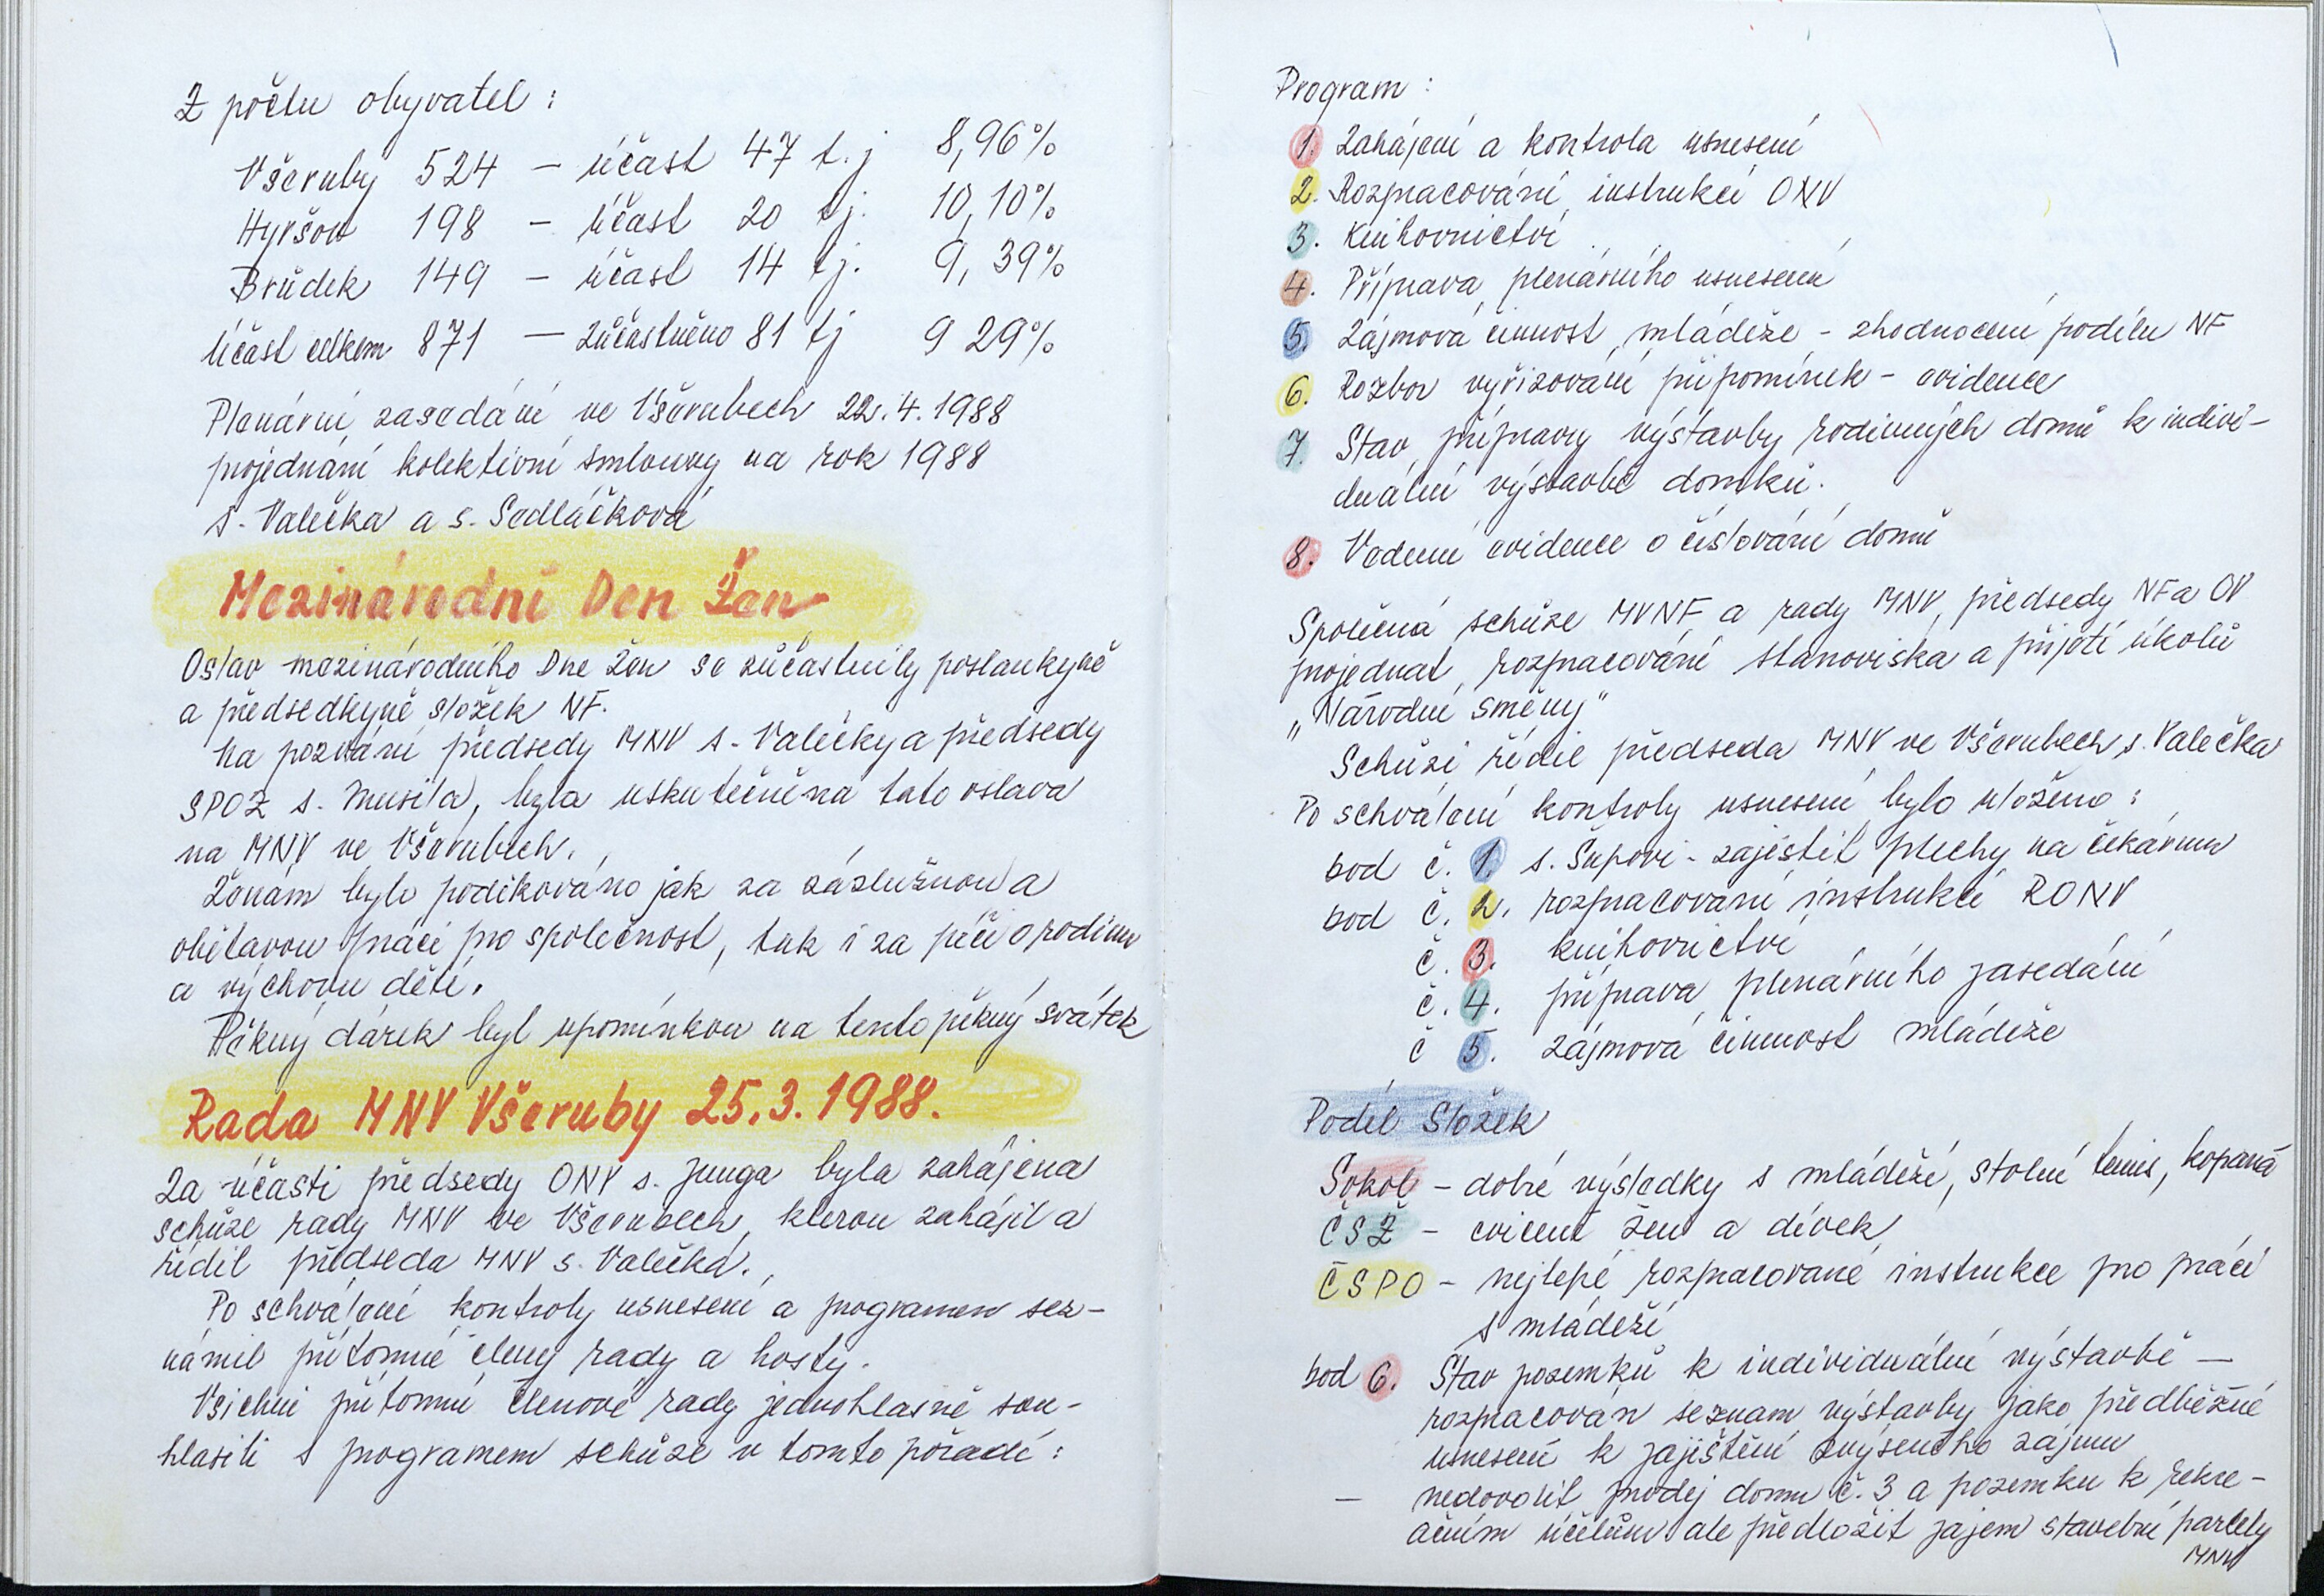 Z počtu obyvatel :
Všeruby 524 – účast 47 t.j 8,96%
Hyršov 198 – účast 20 tj. 10,10%
Brůdek 149 – účast 14 tj. 9,39%
Účast celkem 871 — zúčastněno 81 tj 9 29%
Plenární zasedání ve Všerubech 22.4.1988
projednání kolektivní smlouvy na rok 1988
s. Valečka a s. Sedláčková
Mezinárodní Den Žen
Oslav mezinárodního Dne žen se zúčastnily poslankyně
a předsedkyně složek NF.
Na pozvání předsedy MNV s. Valečky a předsedy
SPOZ s. Musila, byla uskutečněna tato oslava
na MNV ve Všerubech.
Ženám bylo poděkováno jak za záslužnou a
obětavou práci pro společnost, tak i za péči o rodinu
a výchovu dětí.
Pěkný dárek byl upomínkou na tento pěkný svátek
Rada MNV Všeruby 25.3.1988.
Za účasti předsedy ONV s. Junga byla zahájena
schůze rady MNV ve Všerubech, kterou zahájil a
řídil předseda MNV s. Valečka.
Po schválení kontroly usnesení a programem sez-
námil přítomné členy rady a hosty.
Všichni přítomní členové rady jednohlasně sou-
hlasili s programem schůze v tomto pořadí :
Program :
1. Zahájení a kontrola usnesení
2. Rozpracování instrukcí ONV
3. Knihovnictví
4. Příprava plenárního usnesení
5. Zájmová činnost mládeže - zhodnocení podílu NF
6. Rozbor vyřizování připomínek - evidence
7. Stav přípravy výstavby rodinných domů k indivi-
duální výstavbě domků.
8. Vedení evidence o číslování domů
Společná schůze MVNF a rady MNV, předsedy NF a OV
projednat rozpracování stanoviska a přijetí úkolů
„Národní směny"
Schůzi řídil předseda MNV ve Všerubech s. Valečka
Po schválení kontroly usnesení bylo uloženo :
bod č. 1. s. Šupovi - zajistit plechy na čekárnu
bod č. 2. rozpracování instrukcí RONV
č. 3. knihovnictví
č. 4. příprava plenárního zasedání
č 5. zájmová činnost mládeže
Podíl Složek
Sokol – dobré výsledky s mládeží, stolní tenis, kopaná
ČSŽ – cvičení žen a dívek
ČSPO – nejlépe rozpracované instrukce pro práci
s mládeží
bod 6. Stav pozemků k individuální výstavbě —
rozpracován seznam výstavby jako předběžné
usnesení k zajištění zvýšeného zájmu
— nedovolit prodej domu č. 3 a pozemku k rekre-
ačním účelům ale předložit zájem stavební parcely
MNV